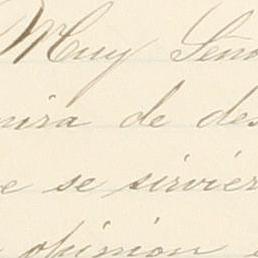 Muy Seño
mira de des
e se sirvier
opinion